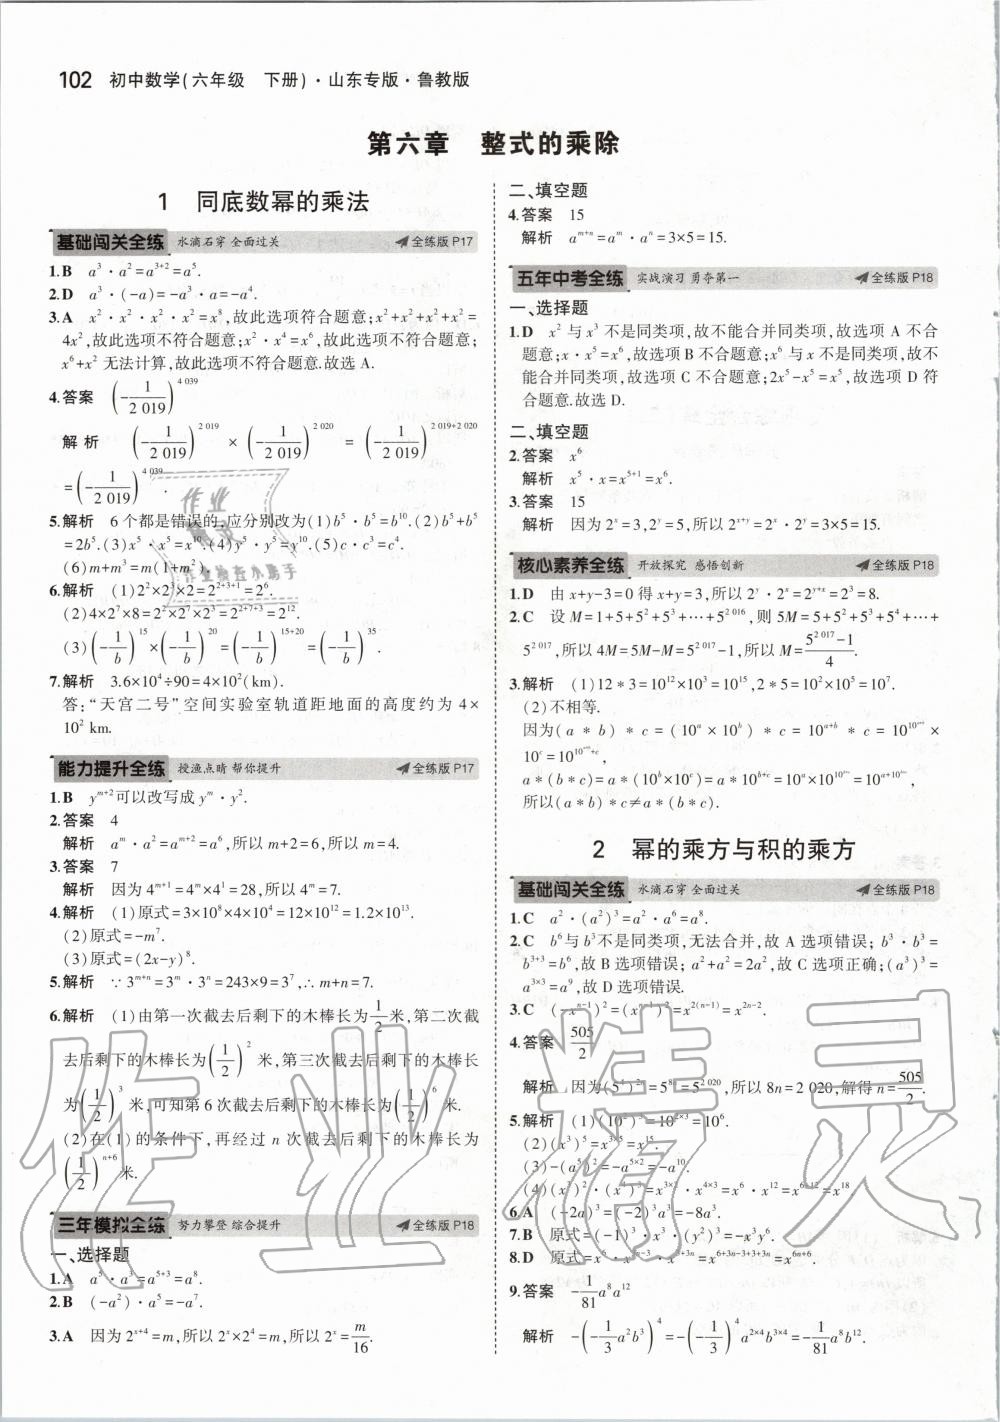 102 初中数学(六年级 下册)·山东专版·鲁教版
第六章 整式的乘除
1 同底数幂的乘法
基础闯关全练 水滴石穿 全面过关 全练版 P17
1.B a³·a²=a³⁺²=a⁵.
2.D a³·(-a)=-a³·a=-a⁴.
3.A x²·x²·x²·x²=x⁸,故此选项符合题意;x²+x²+x²+x²=
4x²,故此选项不符合题意;x²·x⁴=x⁶,故此选项不符合题意;
x⁶+x² 无法计算,故此选项不符合题意.故选 A.
4.答案 (-1/2 019)^(4 039)
解析 (-1/2 019)^(2 019)×(-1/2 019)^(2 020)=(-1/2 019)^(2 019+2 020)
=(-1/2 019)^(4 039).
5.解析 6 个都是错误的,应分别改为(1)b⁵·b⁵=b¹⁰.(2)b⁵+b⁵
=2b⁵.(3)x⁵·x⁵=x¹⁰.(4)y⁵·y⁵=y¹⁰.(5)c·c³=c⁴.
(6)m+m³=m(1+m²).
6.解析 (1)2²×2³×2=2²⁺³⁺¹=2⁶.
(2)4×2⁷×8=2²×2⁷×2³=2²⁺⁷⁺³=2¹².
(3)(-1/b)^15×(-1/b)^20=(-1/b)^(15+20)=(-1/b)^35.
7.解析 3.6×10⁴÷90=4×10²(km).
答:“天宫二号”空间实验室轨道距地面的高度约为 4×
10² km.
能力提升全练 授渔点睛 帮你提升 全练版 P17
1.B y^(m+2)可以改写成 y^m·y².
2.答案 4
解析 a^m·a²=a^(m+2)=a⁶,所以 m+2=6,所以 m=4.
3.答案 7
解析 因为 4^(m+1)=4^m×4¹=28,所以 4^m=7.
4.解析 (1)原式=3×10⁸×4×10⁴=12×10¹²=1.2×10¹³.
(2)原式=-m⁷.
(3)原式=(2x-y)⁸.
5.解析 ∵3^(m+n)=3^m·3^n=243×9=3⁷,∴m+n=7.
6.解析 (1)由第一次截去后剩下的木棒长为1/2米,第二次截
去后剩下的木棒长为(1/2)²米,第三次截去后剩下的木棒长
为(1/2)³米,可知第 6 次截去后剩下的木棒长为(1/2)⁶米.
(2)在(1)的条件下,再经过 n 次截去后剩下的木棒长为
(1/2)^(n+6)米.
三年模拟全练 努力攀登 综合提升 全练版 P18
一、选择题
1.A a⁵·a³=a⁵⁺³=a⁸.
2.B (-a²)·a⁵=-a⁷.
3.A 因为 2^(x+4)=m,所以 2^x×2⁴=m,所以 2^x=m/16.
二、填空题
4.答案 15
解析 a^(m+n)=a^m·a^n=3×5=15.
五年中考全练 实战演习 勇夺第一 全练版 P18
一、选择题
1.D x² 与 x³ 不是同类项,故不能合并同类项,故选项 A 不合
题意;x·x⁵=x⁶,故选项 B 不合题意;x⁶ 与 x 不是同类项,故不
能合并同类项,故选项 C 不合题意;2x⁵-x⁵=x⁵,故选项 D 符
合题意.故选 D.
二、填空题
2.答案 x⁶
解析 x⁵·x=x⁵⁺¹=x⁶.
3.答案 15
解析 因为 2^x=3,2^y=5,所以 2^(x+y)=2^x·2^y=3×5=15.
核心素养全练 开放探究 感悟创新 全练版 P18
1.D 由 x+y-3=0 得 x+y=3,所以 2^y·2^x=2^(y+x)=2³=8.
2.C 设 M=1+5+5²+5³+…+5^(2 016),则 5M=5+5²+5³+5⁴+…+
5^(2 017),所以 4M=5M-M=5^(2 017)-1,所以 M=(5^(2 017)-1)/4.
3.解析 (1)12*3=10¹²×10³=10¹⁵,2*5=10²×10⁵=10⁷.
(2)不相等.
因为(a*b)*c=(10^a×10^b)*c=10^(a+b)*c=10^(10^(a+b))×
10^c=10^(10^(a+b)+c),
a*(b*c)=a*(10^b×10^c)=a*10^(b+c)=10^a×10^(10^(b+c))=10^(a+10^(b+c)),
所以(a*b)*c≠a*(b*c).
2 幂的乘方与积的乘方
基础闯关全练 水滴石穿 全面过关 全练版 P18
1.C a²·(a²)³=a²·a⁶=a⁸.
2.C b⁶与 b³不是同类项,无法合并,故 A 选项错误;b³·b³=
b³⁺³=b⁶,故 B 选项错误;a²+a²=2a²,故 C 选项正确;(a³)³=
a³ˣ³=a⁹,故 D 选项错误.
3.C (-x^(n-1))²=(x^(n-1))²=x^(2(n-1))=x^(2n-2).
4.答案 505/2
解析 因为(5⁴)²=5^(8n)=5^(2 020),所以 8n=2 020,解得 n=505/2.
5.解析 (1)(10²)³=10²ˣ³=10⁶.
(2)(x³)⁵=x³ˣ⁵=x¹⁵.
(3)-(a⁵)²=-a⁵ˣ²=-a¹⁰.
(4)(x²)³·(x⁴)³=x³ˣ²·x⁴ˣ³=x⁶·x¹²=x⁶⁺¹²=x¹⁸
6.A (-2a)³=(-2)³a³=-8a³.
7.B 原式=(-1)³·x³·(y²)³=-x³y⁶.
8.D 原式=x⁶·x^(3n-3)·x^(3+3n)=x^(6+3n-3+3+3n)=x^(6n+6).
9.答案 -1/81 a⁸a¹²
解析 -(-1/3 a²b³)⁴=-(-1/3)⁴a²ˣ⁴b³ˣ⁴=-1/81 a⁸b¹².
作业精灵